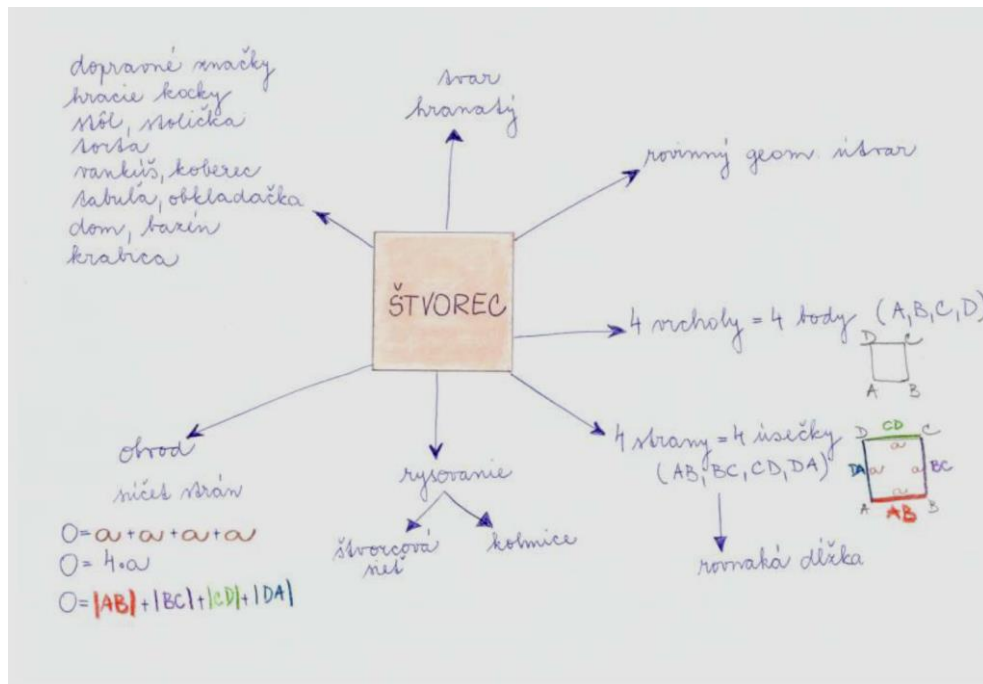 dopravné značky
hracie kocky
stôl, stolička
torta
vankúš, koberec
tabuľa, obkladačka
dom, bazén
krabica
tvar
hranatý
rovinný geom. útvar
ŠTVOREC
4 vrcholy = 4 body (A,B,C,D)
D C
A B
4 strany = 4 úsečky
(AB, BC, CD, DA)
D CD C
a
DA a a BC
a
A AB B
rovnaká dĺžka
rysovanie
štvorcová
sieť
kolmice
obvod
súčet strán
O = a + a + a + a
O = 4·a
O = |AB| + |BC| + |CD| + |DA|